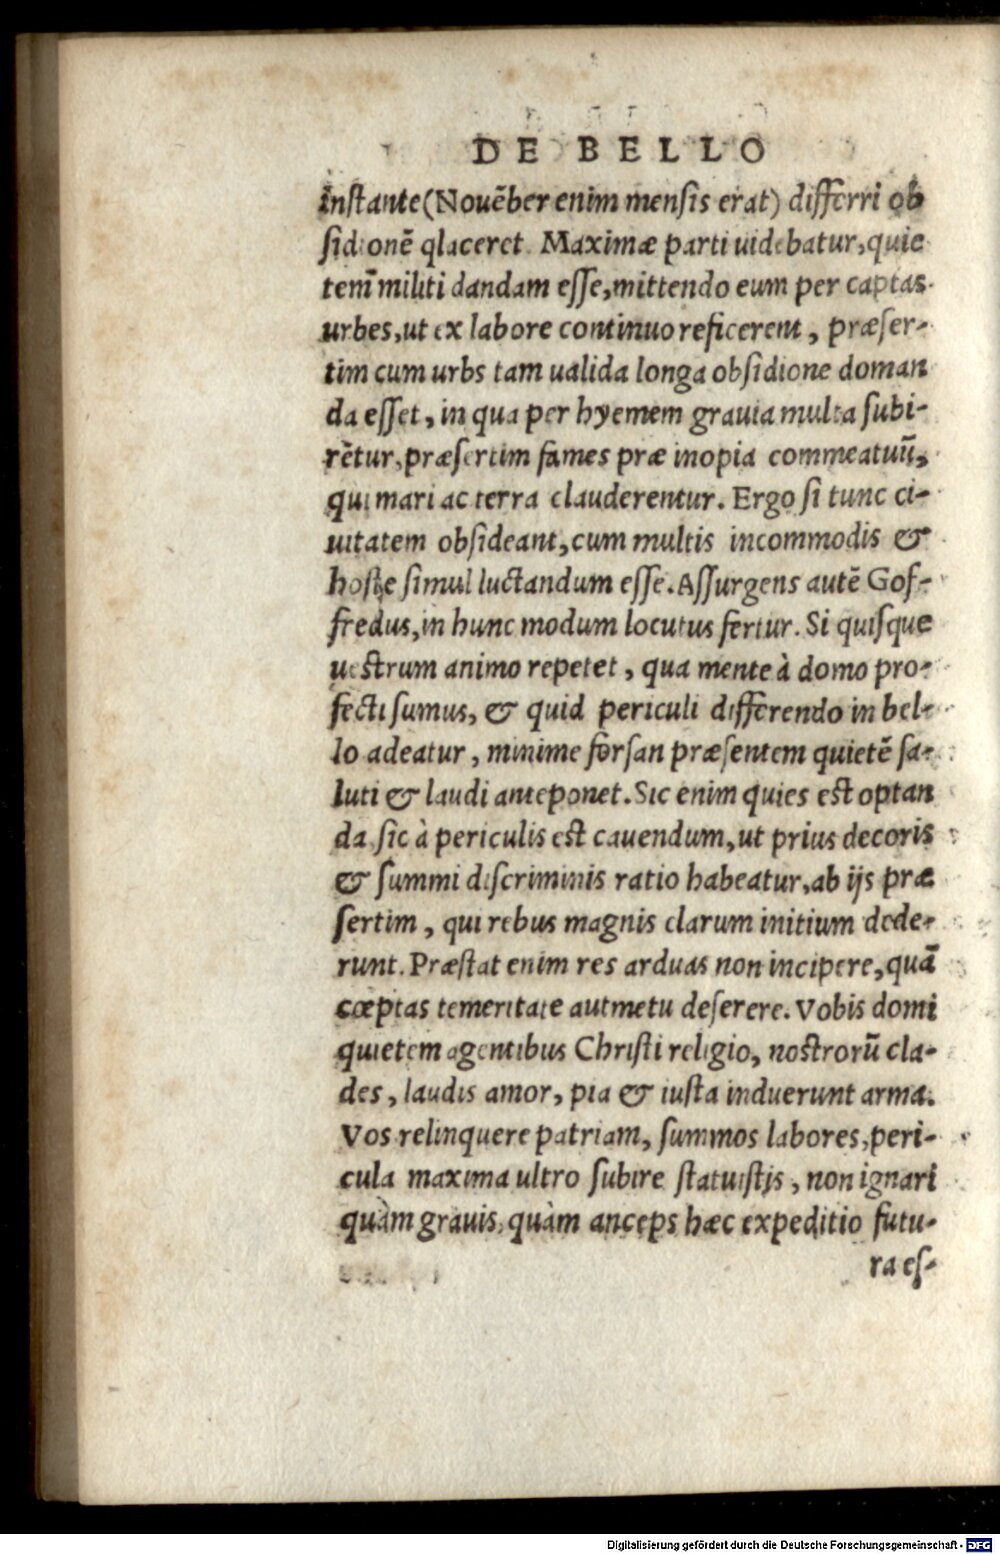 DE BELLO
instante (Nouẽber enim mensis erat) differri ob
sidionẽ qlaceret. Maximæ parti uidebatur, quie
tem̃ militi dandam esse, mittendo eum per captas
urbes, ut ex labore continuo reficerent, præser-
tim cum urbs tam ualida longa obsidione doman
da esset, in qua per hyemem grauia multa subi-
rẽtur, præsertim fames præ inopia commeatuũ,
qui mari ac terra clauderentur. Ergo si tunc ci-
uitatem obsideant, cum multis incommodis &
hoste simul luctandum esse. Assurgens autẽ Gof-
fredus, in hunc modum locutus fertur. Si quisque
uestrum animo repetet, qua mente à domo pro-
fecti sumus, & quid periculi differendo in bel-
lo adeatur, minime forsan præsentem quietẽ sa-
luti & laudi anteponet. Sic enim quies est optan
da sic à periculis est cauendum, ut prius decoris
& summi discriminis ratio habeatur, ab ijs præ
sertim, qui rebus magnis clarum initium dede-
runt. Præstat enim res arduas non incipere, quã
cœptas temeritate aut metu deserere. Vobis domi
quietem agentibus Christi religio, nostrorũ cla-
des, laudis amor, pia & iusta induerunt arma.
Vos relinquere patriam, summos labores, peri-
cula maxima ultro subire statuistis, non ignari
quàm grauis, quàm anceps hæc expeditio futu-
ra es-
Digitalisierung gefördert durch die Deutsche Forschungsgemeinschaft - DFG